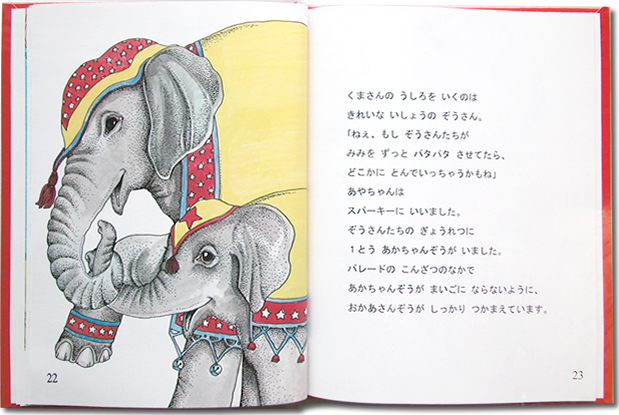 くまさんの うしろを いくのは
きれいな いしょうの ぞうさん。
「ねぇ、もし ぞうさんたちが
みみを ずっと パタパタ させてたら、
どこかに とんでいっちゃうかもね」
あやちゃんは
スパーキーに いいました。
ぞうさんたちの ぎょうれつに
１とう あかちゃんぞうが いました。
パレードの こんざつのなかで
あかちゃんぞうが まいごに ならないように、
おかあさんぞうが しっかり つかまえています。
22
23